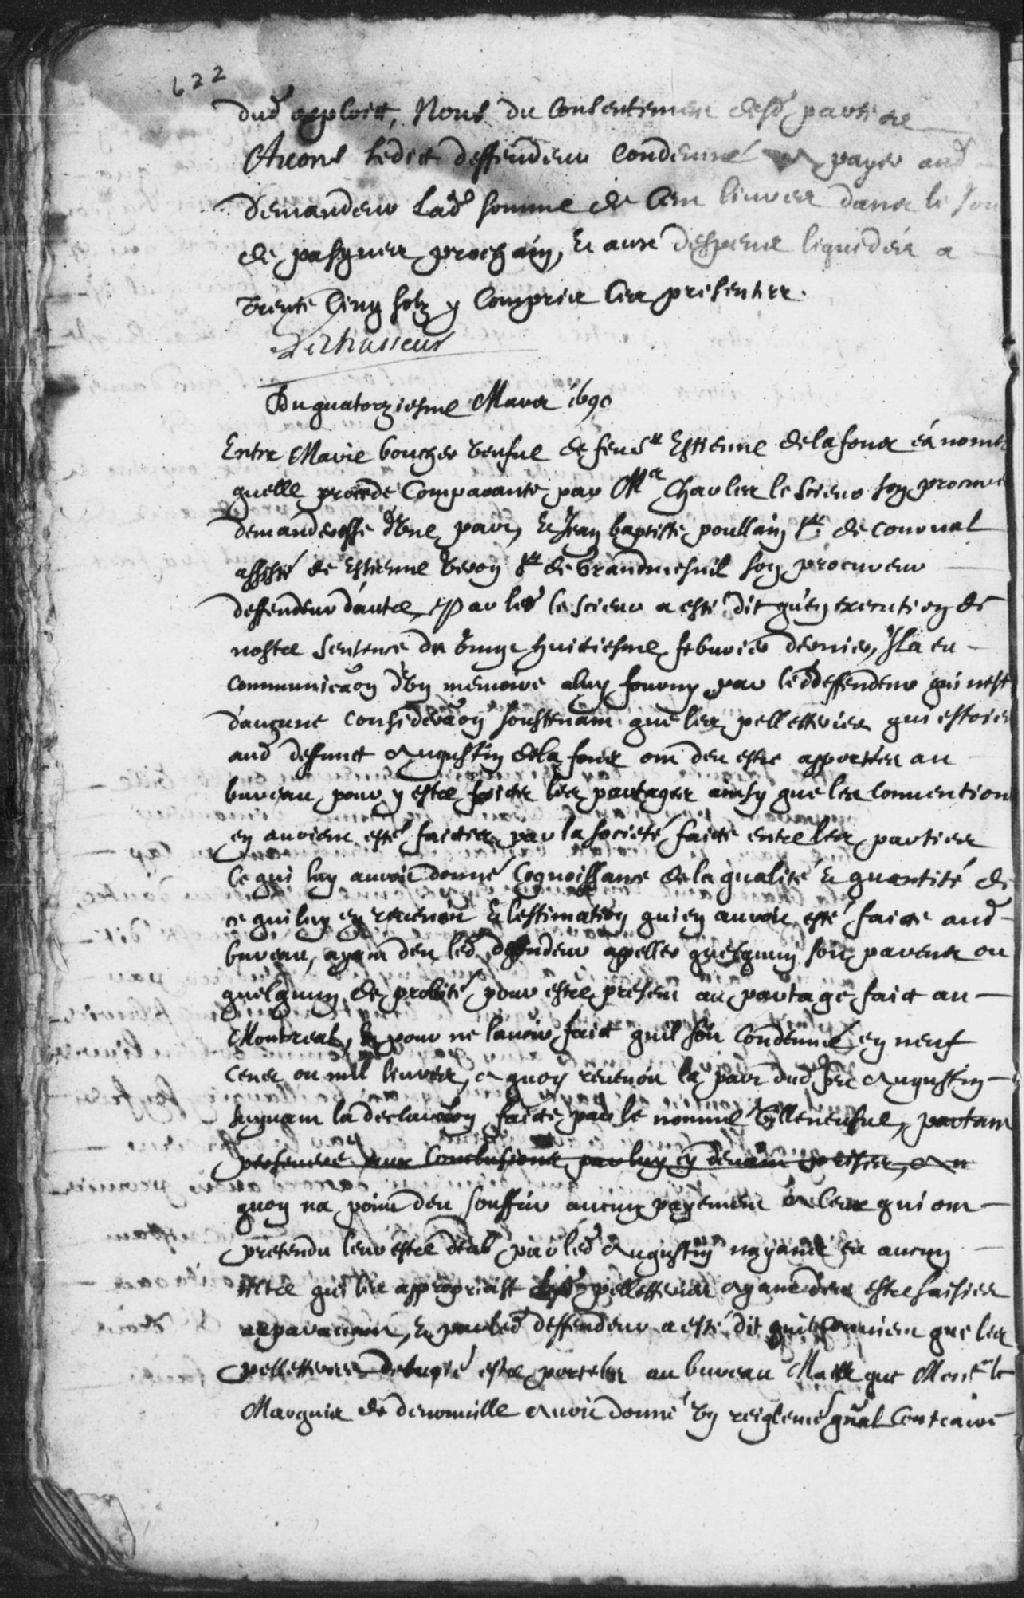 622
dud exploict, Nous du Consentement desd parties
Avons ledict deffendeur Condemné a payer aud
demandeur lad somme de Cent livres dans le jour
de pasques prochain, Et aux despens liquidés a
trente Cinq solz y Compris les presentes.
Dechasseur
Du quatorziesme Mars 1690
Entre Marie bourger veufve de feu Sr Estienne delafond és noms
quelle procede Comparante par Mr Charles le Sieur son procureur
demanderesse d'une part, Et Jean baptiste poullain Sr de Courval
assisté de Estienne Veron Sr de Grandmesnil son procureur
deffendeur d'autre, Par led le Sieur a esté dit qu'en execution de
nostre Sentence du vingt huitiesme febvrier dernier, Il a eu
communicaon d'un memoire a luy fourny par led deffendeur qui n'est
d'aucune consideraon soustenant que les pelletteries qui estoient
aud deffunct Augustin delafond ont deu estre apportées au
bureau pour y estre faictes les partages ainsy que les Conventions
en avoient esté faictes par la societé faicte entre les parties
Ce qui luy auroit donné Cognoissance de la qualité Et quantité de
ce qui luy en revenoit Et l'estimation qui en auroit esté faicte aud
bureau, ayant deu led deffendeur appeller quelqu'un son parents ou
quelqu'un de probité pour estre present au partage faict au
Montreal, Et pour ne l'avoir faict qu'il soit Condemné en neuf
Cens ou mil livres, a quoy revenoit la part dud feu Augustin
suyvant la declaraon faicte par le nommé Villeneufve, partant
persevere aux Conclusions par luy cy devant prises,
quoy na point deu souffrir aucun payement a Ceux qui ont
pretendu leur estre deub par led Augustin n'ayant eu aucun
tiltre qui les appropriast pelletteries ayant deu estre saisies
auparavant, Et par led deffendeur a esté dit qu'il Convient que les
pelletteries estre portées au bureau Mais que Monsr le
Marquis de denonville avoit donné un reiglemt gnal Contraire